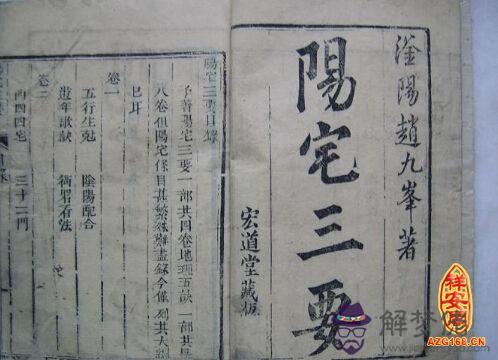 滏陽趙九峯著
陽宅三要
宏道堂藏板
陽宅三要目錄
予著陽宅三要一部共四卷地理五訣一部共
八卷但陽宅條目甚繁難盡錄今僅列其大
卷一
五行生剋 陰陽配合
遊年歌訣
卷二
四宅 三十二門
祥安阁
解梦
AZG168.CN